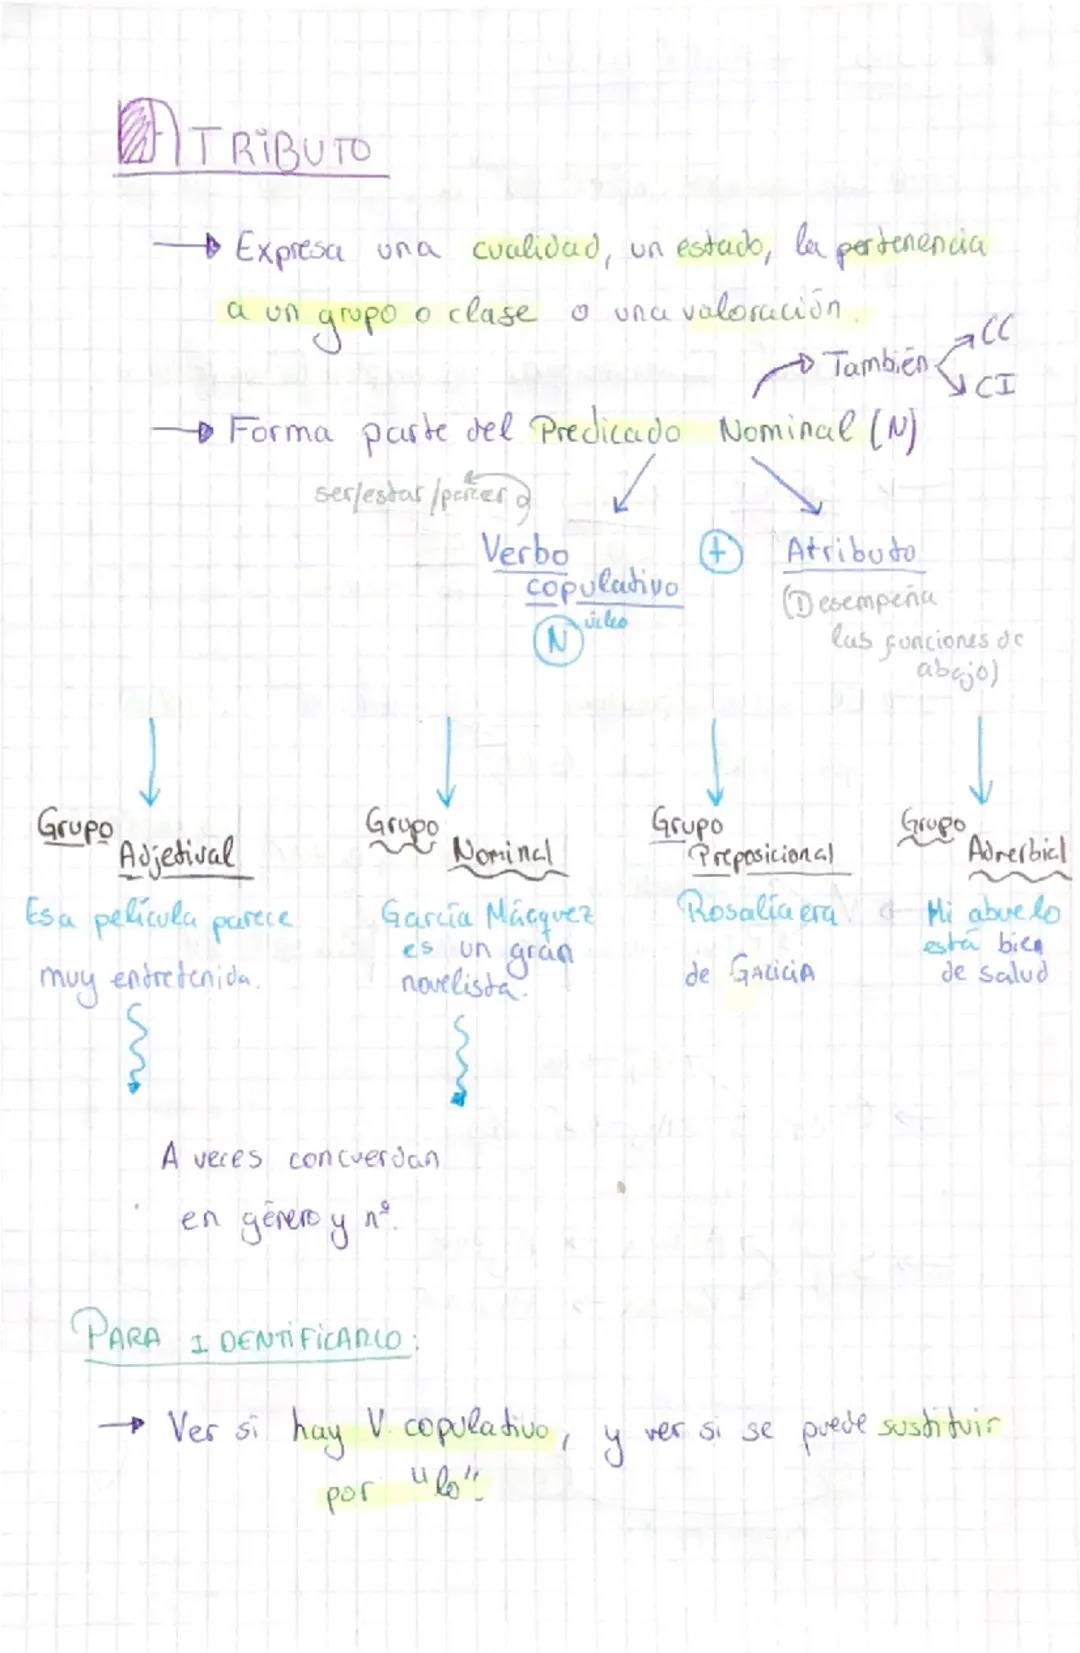 ATRIBUTO
Expresa una cualidad, un estado, la pertenencia
a un grupo o clase o una valoración.
También CC
CI
Forma parte del Predicado Nominal (N)
ser/estar/parecer
Verbo + Atributo
copulativo
Núcleo
(Desempeña
las funciones de
abajo)
Grupo Adjetival
Grupo Nominal
Grupo Preposicional
Grupo Adverbial
Esa película parece
muy entretenida.
García Mácquez
es un gran
novelista.
Rosalía era
de GALICIA
Mi abuelo
está bien
de salud
A veces concuerdan
en género y nº.
PARA IDENTIFICARLO:
Ver si hay V. copulativo, y ver si se puede sustituir
por "lo".